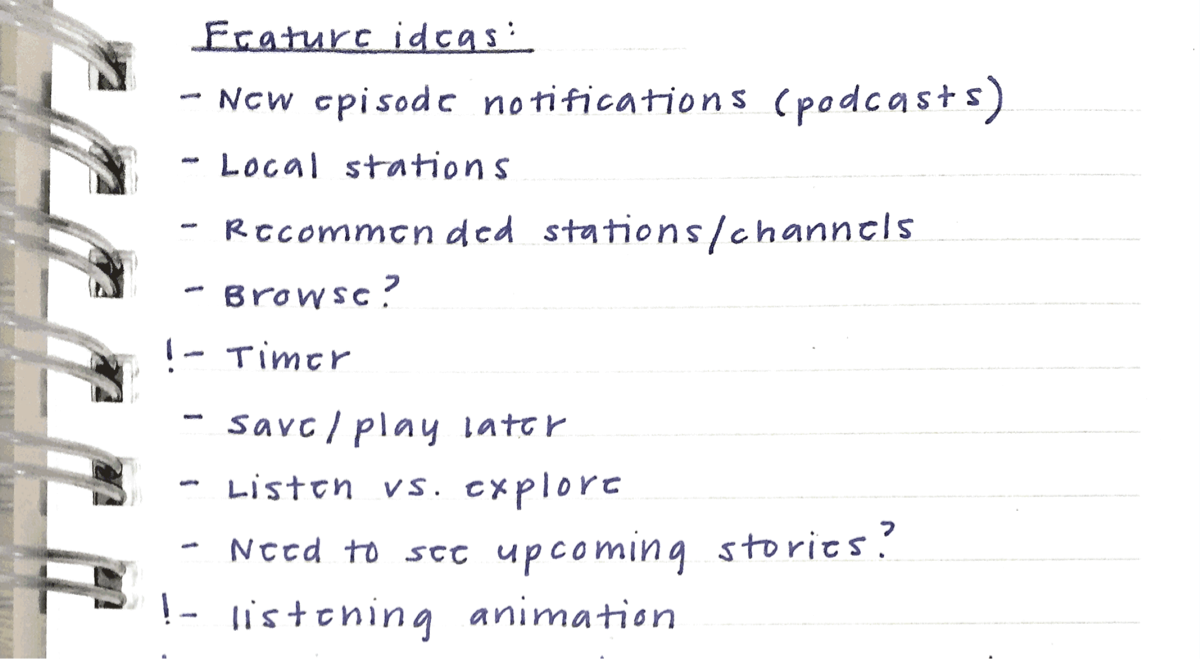 Feature ideas:
- New episode notifications (podcasts)
- Local stations
- Recommended stations/channels
- Browse?
!- Timer
- Save/play later
- Listen vs. explore
- Need to see upcoming stories?
!- listening animation